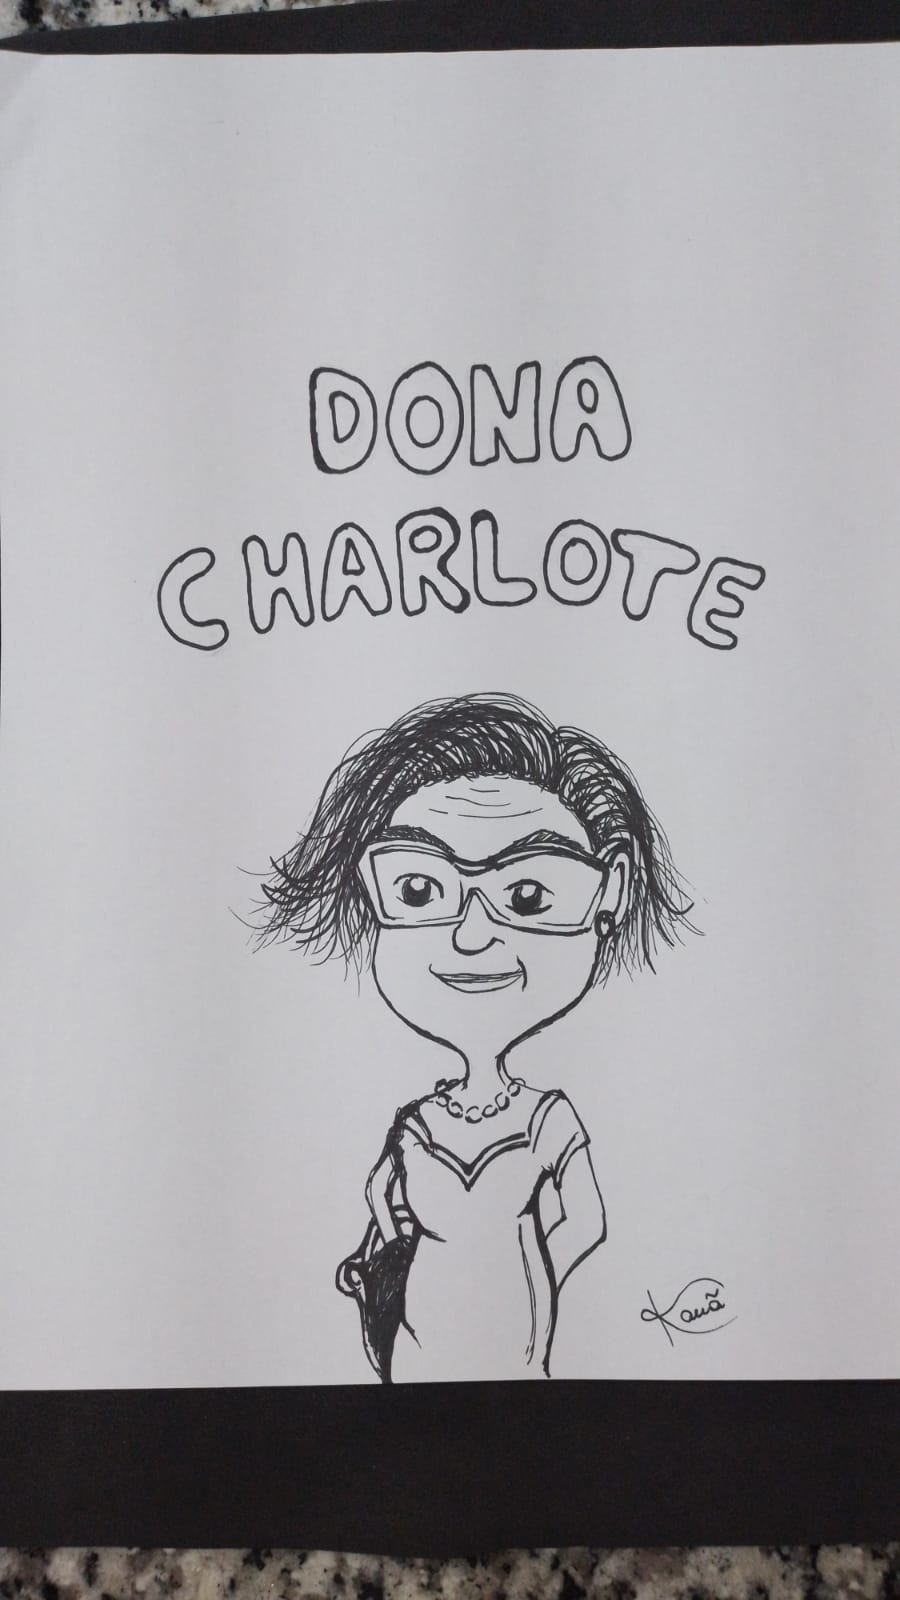 DONA
CHARLOTE
Kauã